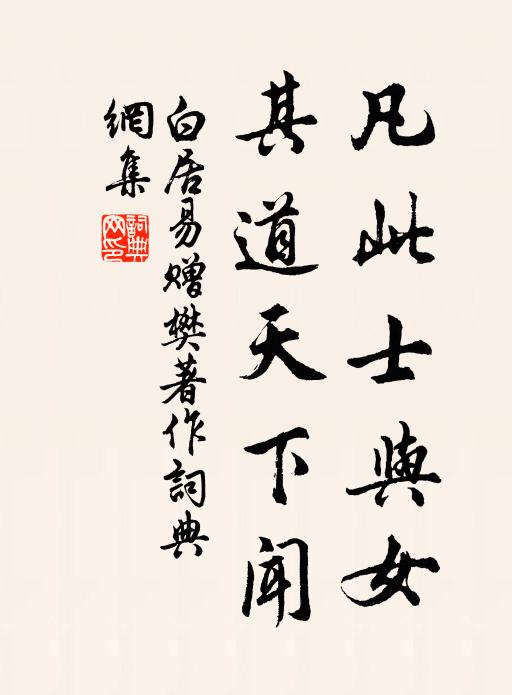 凡此士與女
其道天下聞
白居易赠樊著作詞典
網集
詞典網印